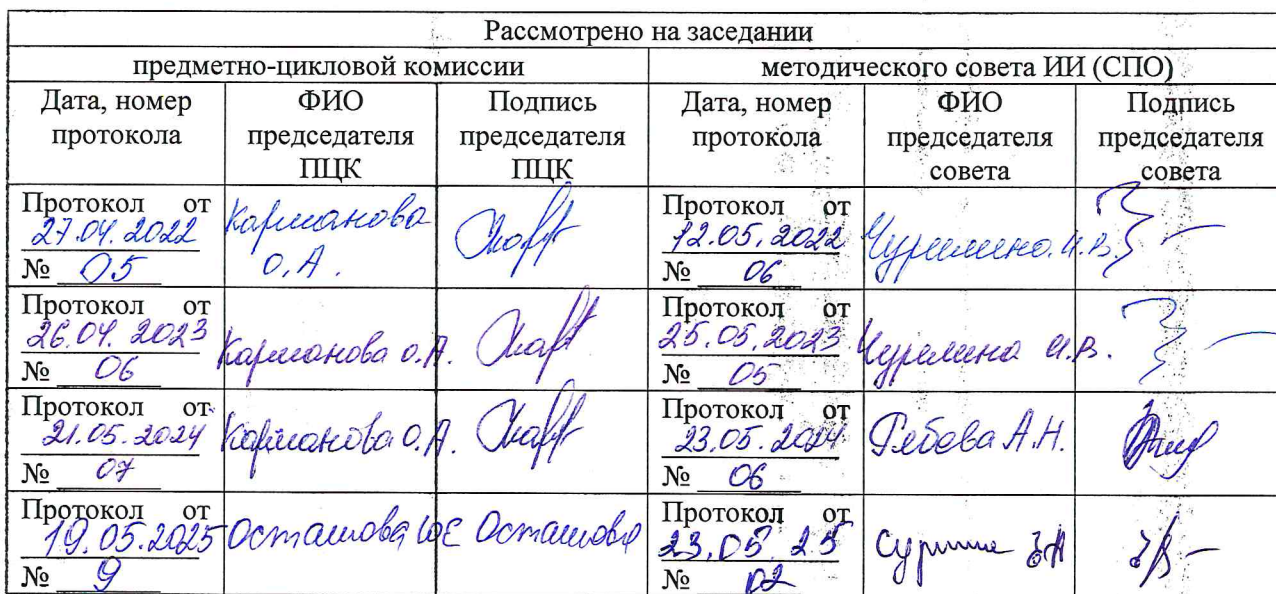 Рассмотрено на заседании
предметно-цикловой комиссии
методического совета ИИ (СПО)
Дата, номер протокола
ФИО председателя ПЦК
Подпись председателя ПЦК
Дата, номер протокола
ФИО председателя совета
Подпись председателя совета
Протокол от 27.04.2022 № 05
Карманова О.А.
Протокол от 12.05.2022 № 06
Чурилина И.В.
Протокол от 26.04.2023 № 06
Карманова О.А.
Протокол от 25.05.2023 № 05
Чурилина И.В.
Протокол от 21.05.2024 № 07
Карманова О.А.
Протокол от 23.05.2024 № 06
А.Н.
Протокол от 19.05.2025 № 9
Осташова ЮЕ
Осташова
Протокол от 23.05.25 № 02